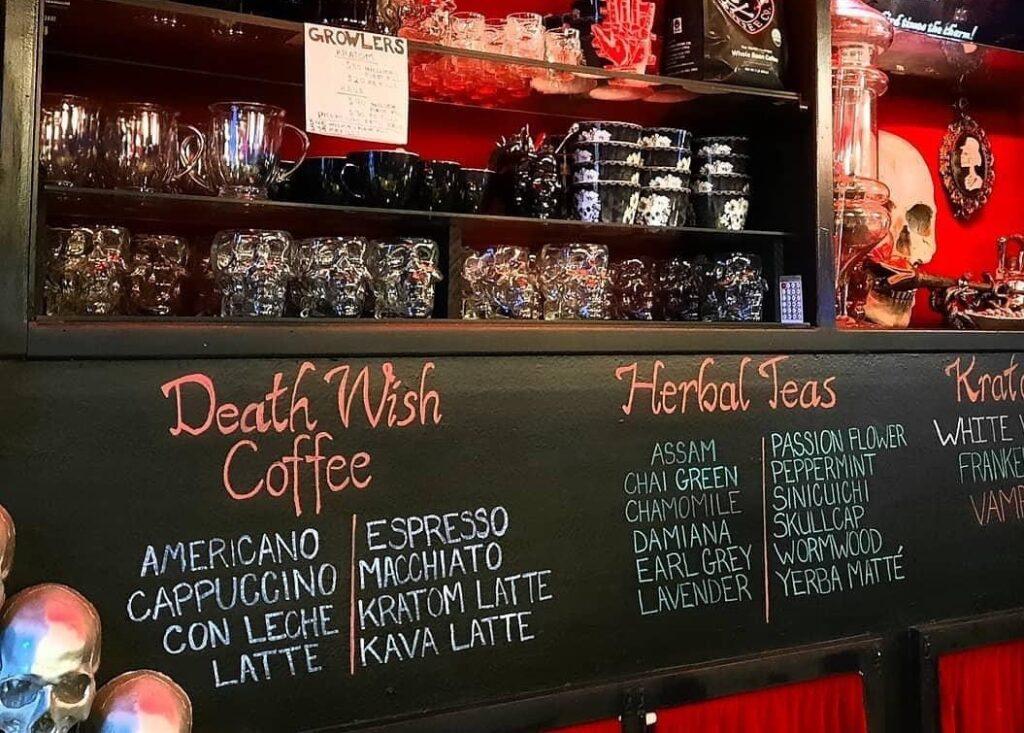 GROWLERS
KRATOM
KAVA
Whole Bean Coffee
times the charm!
Death Wish
Coffee
AMERICANO
CAPPUCCINO
CON LECHE
LATTE
ESPRESSO
MACCHIATO
KRATOM LATTE
KAVA LATTE
Herbal Teas
ASSAM
CHAI GREEN
CHAMOMILE
DAMIANA
EARL GREY
LAVENDER
PASSION FLOWER
PEPPERMINT
SINICUICHI
SKULLCAP
WORMWOOD
YERBA MATTÉ
Krat
WHITE
FRANKE
VAMP